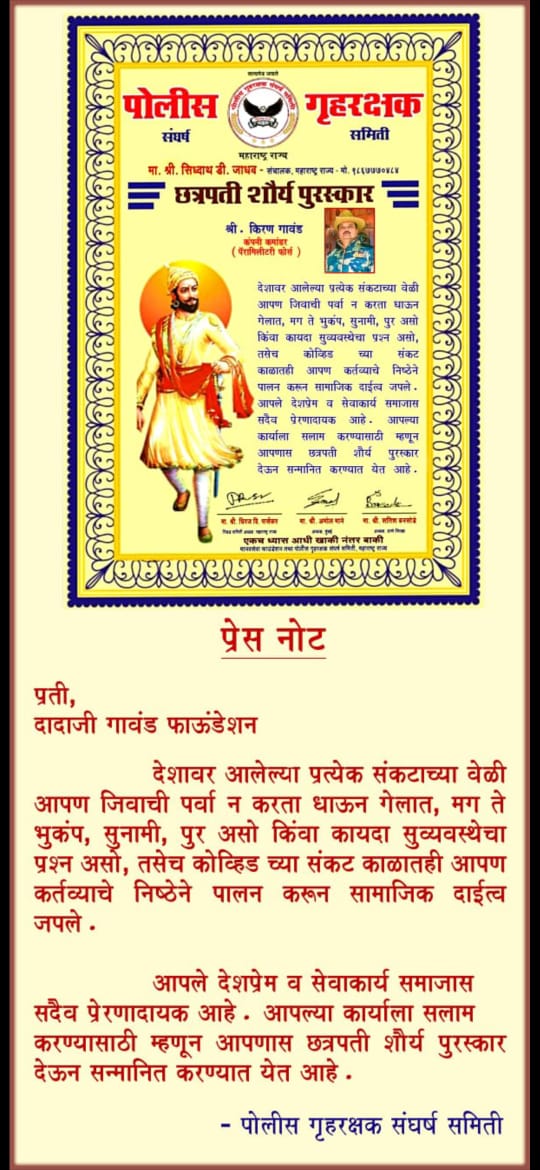 सत्यमेव जयते
पोलीस गृहरक्षक
संघर्ष समिती
महाराष्ट्र राज्य
मा. श्री. सिध्दाथ डी. जाधव - संचालक, महाराष्ट्र राज्य - मो. ९८६७७७०४८४
छत्रपती शौर्य पुरस्कार
श्री. किरण गावंड
कंपनी कमांडर
( पॅरामिलीटरी फोर्स )
देशावर आलेल्या प्रत्येक संकटाच्या वेळी
आपण जिवाची पर्वा न करता धाऊन
गेलात, मग ते भुकंप, सुनामी, पुर असो
किंवा कायदा सुव्यवस्थेचा प्रश्न असो,
तसेच कोव्हिड च्या संकट
काळातही आपण कर्तव्याचे निष्ठेने
पालन करून सामाजिक दाईत्व जपले.
आपले देशप्रेम व सेवाकार्य समाजास
सदैव प्रेरणादायक आहे. आपल्या
कार्याला सलाम करण्यासाठी म्हणून
आपणास छत्रपती शौर्य पुरस्कार
देऊन सन्मानित करण्यात येत आहे.
मा. श्री. अमोल माने
एकच ध्यास आधी खाकी नंतर बाकी
मानवसेवा फाऊंडेशन तथा पोलीस गृहरक्षक संघर्ष समिती, महाराष्ट्र राज्य
प्रेस नोट
प्रती,
दादाजी गावंड फाऊंडेशन
देशावर आलेल्या प्रत्येक संकटाच्या वेळी
आपण जिवाची पर्वा न करता धाऊन गेलात, मग ते
भुकंप, सुनामी, पुर असो किंवा कायदा सुव्यवस्थेचा
प्रश्न असो, तसेच कोव्हिड च्या संकट काळातही आपण
कर्तव्याचे निष्ठेने पालन करून सामाजिक दाईत्व
जपले.
आपले देशप्रेम व सेवाकार्य समाजास
सदैव प्रेरणादायक आहे. आपल्या कार्याला सलाम
करण्यासाठी म्हणून आपणास छत्रपती शौर्य पुरस्कार
देऊन सन्मानित करण्यात येत आहे.
- पोलीस गृहरक्षक संघर्ष समिती